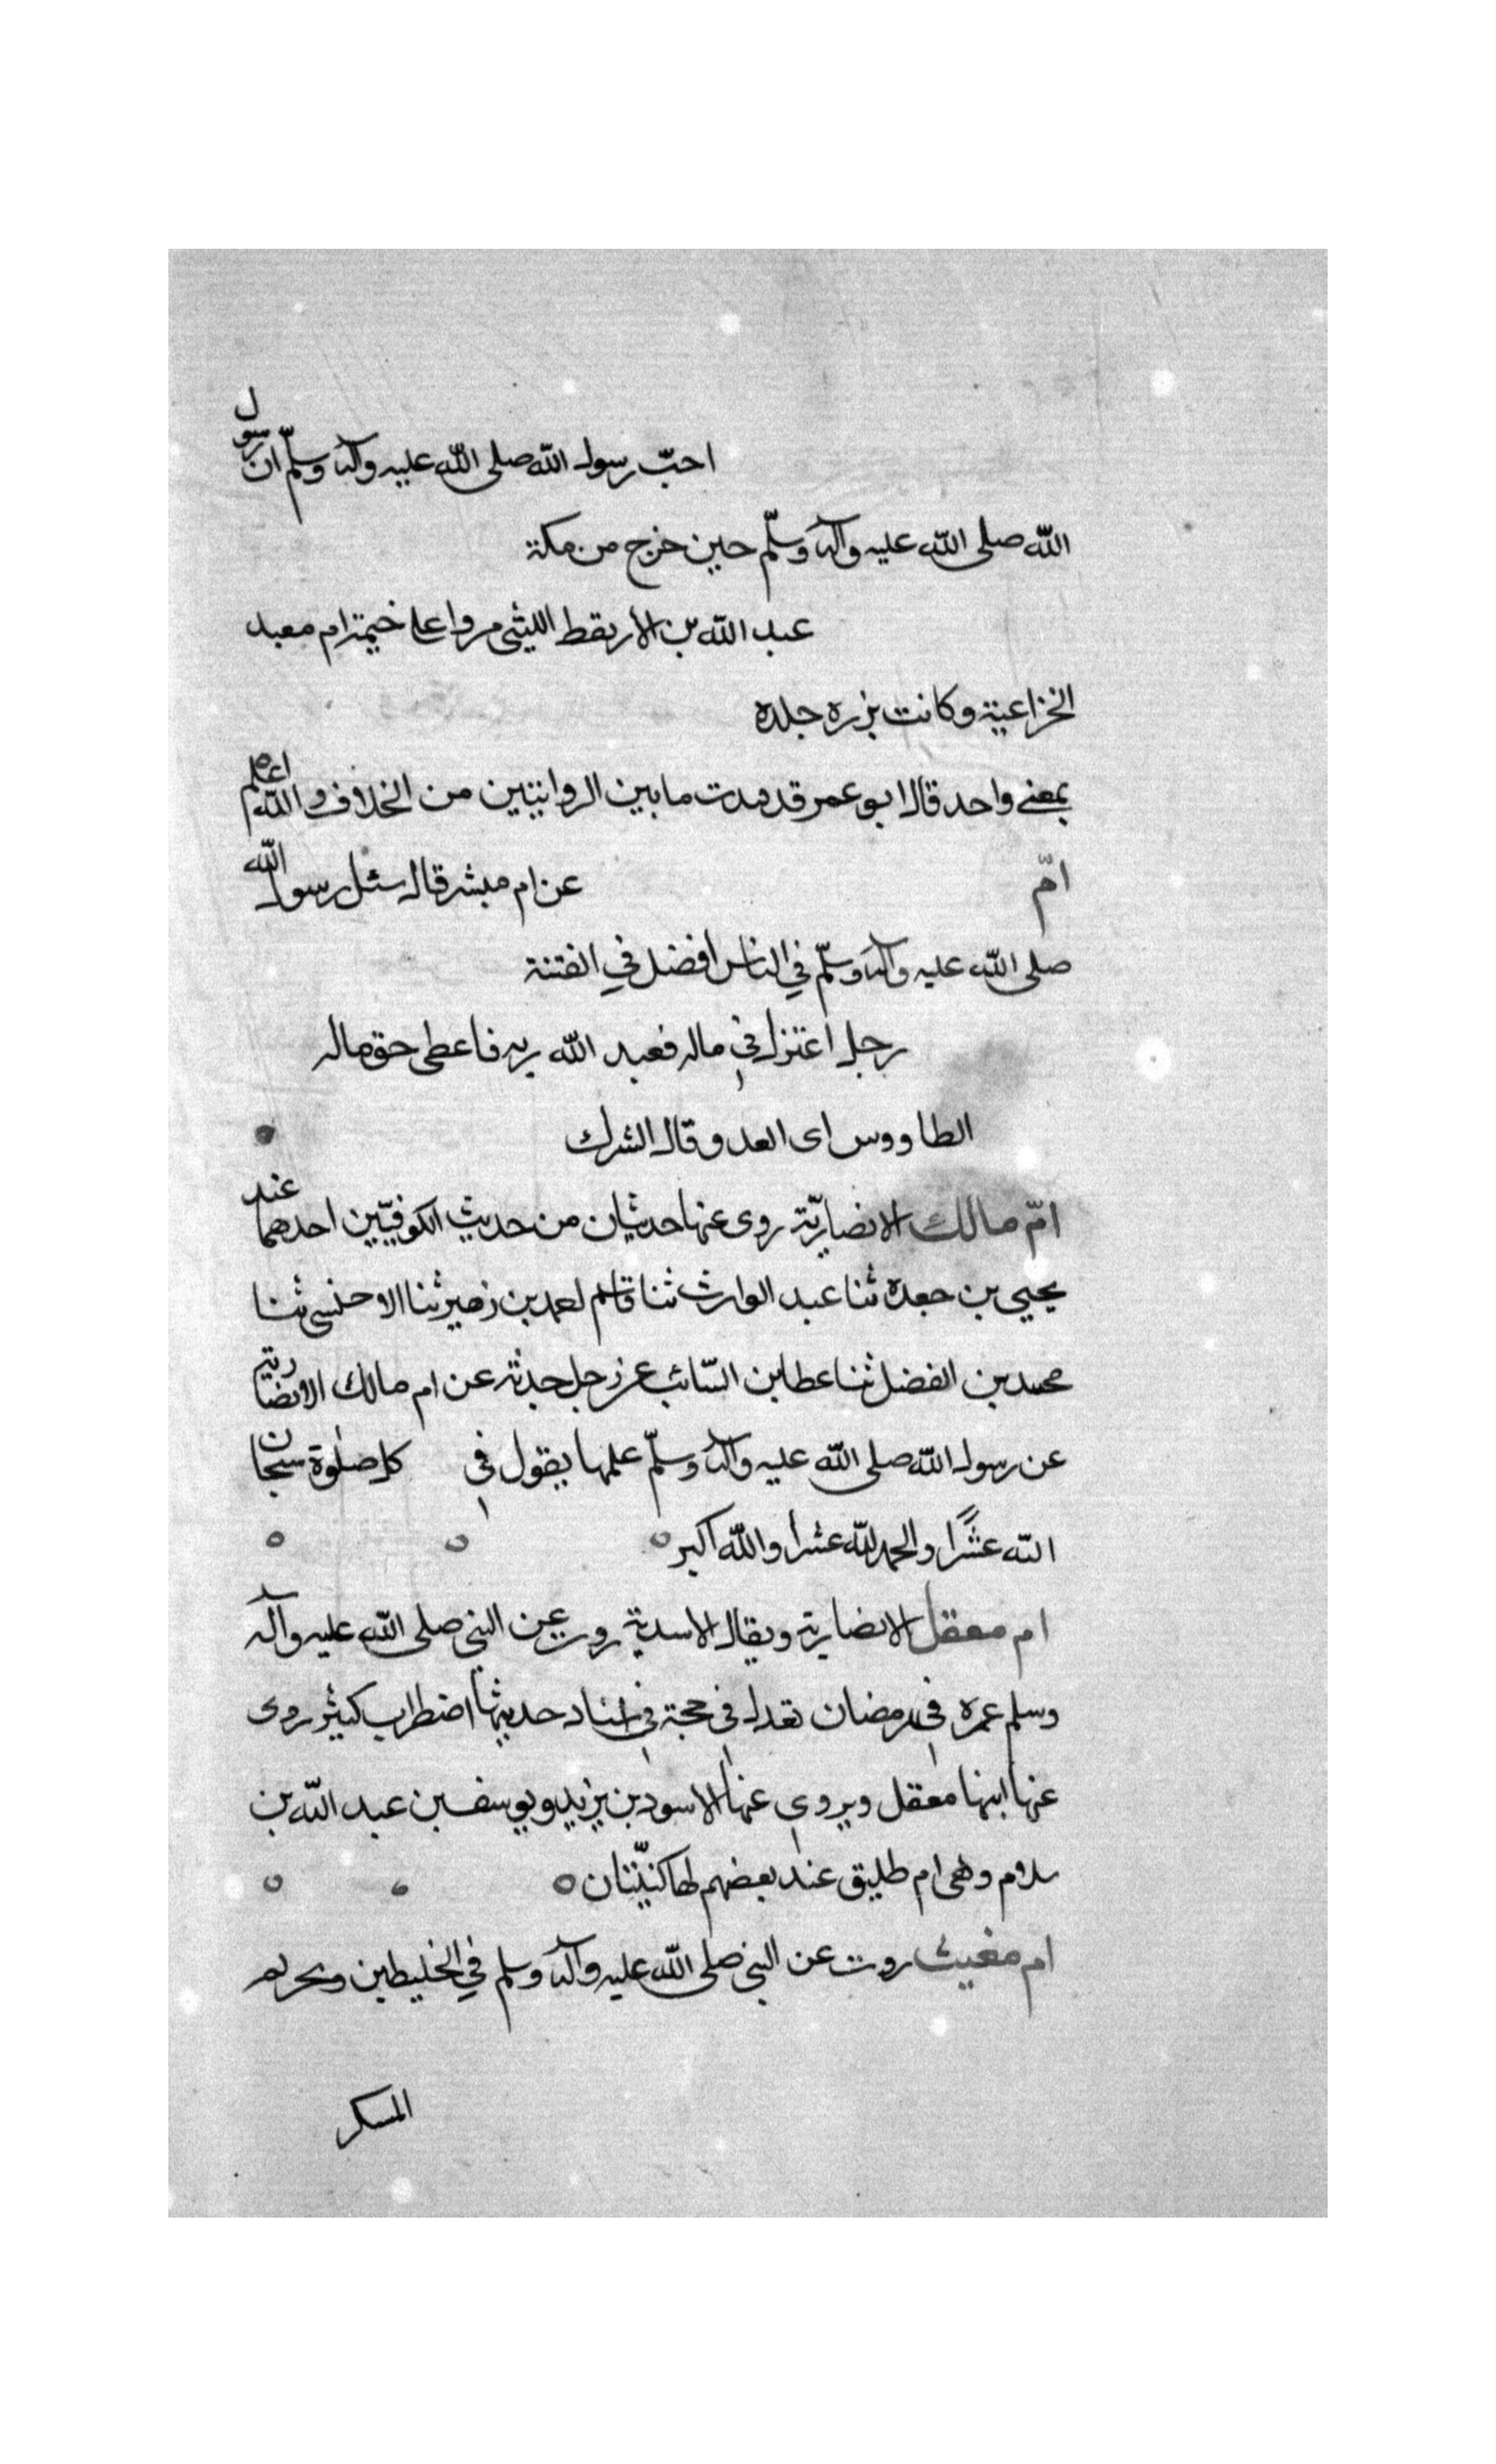 احبّ رسول الله صلى الله عليه وآله وسلّم ان رسول
الله صلى الله عليه وآله وسلّم حين خرج من مكة
عبد الله بن الاريقط الليثى مروا على خيمة ام معبد
الخزاعية وكانت برزه جلده
بمعنى واحد قال ابو عمر قد مابين الروايتين من الخلاف والله اعلم
امّ عن ام مبشر قال سئل رسول الله
صلى الله عليه وآله وسلّم في الناس افضل في الفتنة
رجل اعتزل في ماله فعبد الله ربه فاعطى حق ماله
الطاووس اى العدو قال الشرك
امّ مالك الانصاريّة روى عنها حديثان من حديث الكوفيّين احدهما عند
يحيى بن جعده ثنا عبد الوارث ثنا قاسم بن زهير ثنا ثنا
محمد بن الفضل ثنا عطا بن السّائب عن رجل حدثه عن ام مالك الانصارية
عن رسول الله صلى الله عليه وآله وسلّم علمها يقول في كل صلوة سبحان
الله عشرًا والحمد لله عشرا والله اكبر
ام معقل الانصارية ويقال الاسدية روت عن النبى صلى الله عليه وآله
وسلم عمره في رمضان تعدل في حجة في اسناد حديثها اضطراب كثير روى
عنها ابنها معقل ويروى عنها الاسود بن يزيد ويوسف بن عبد الله بن
سلام وهى ام طليق عند بعضهم لها كنيّتان
ام مغيث روت عن النبى صلى الله عليه وآله وسلم في الخليطين وتحريم
المسكر